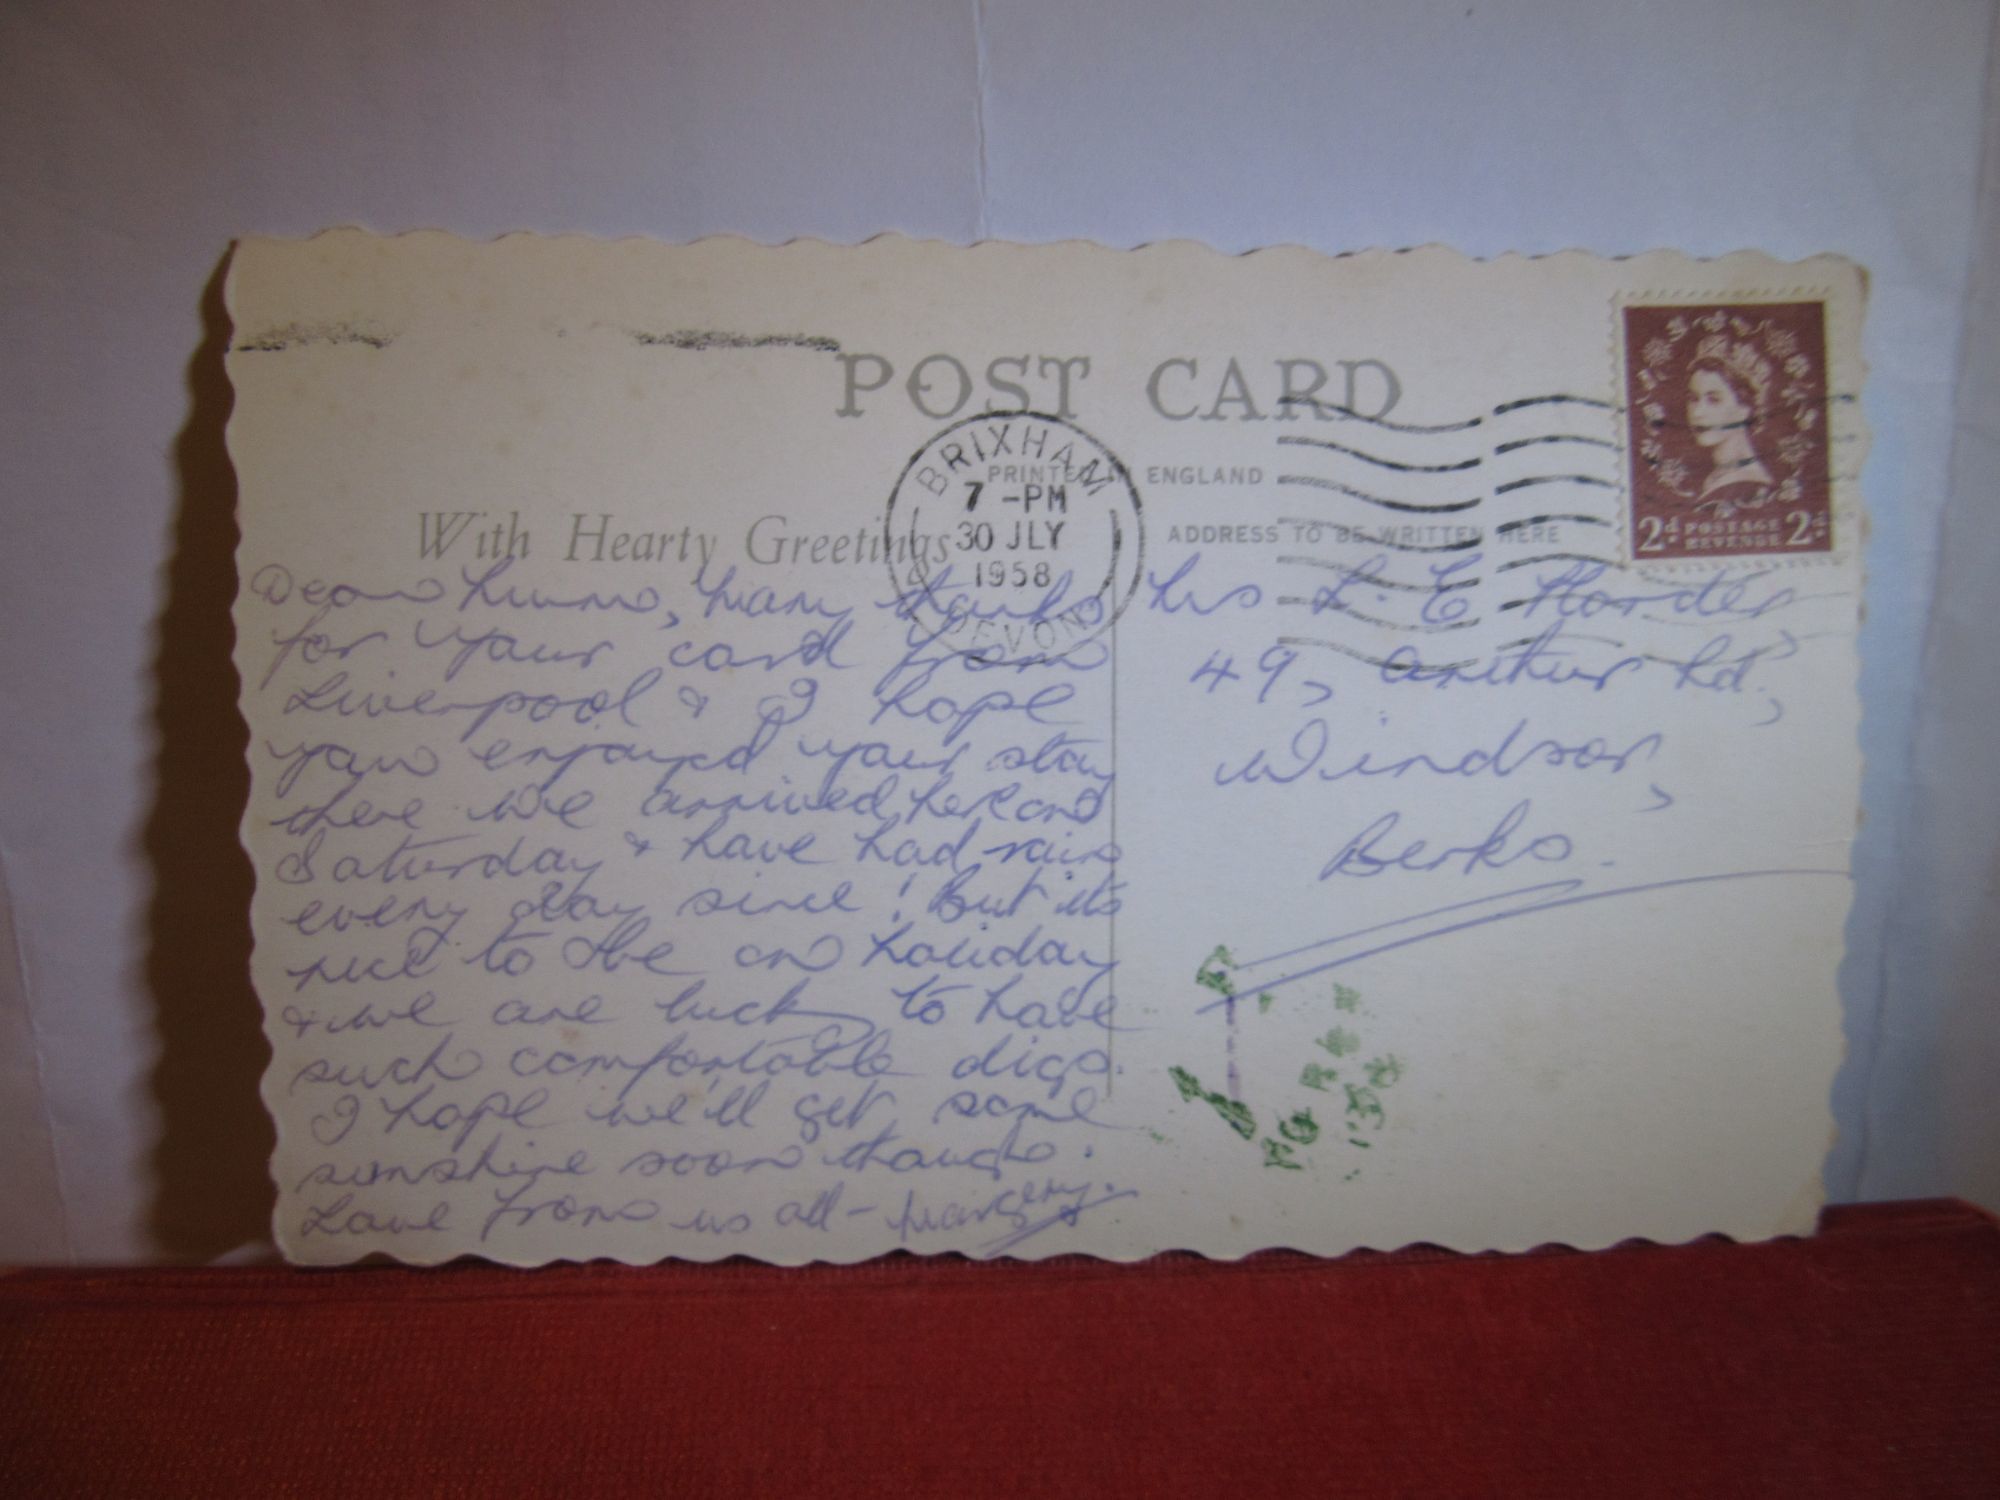 POST CARD
PRINTED IN ENGLAND
BRIXHAM
7 -PM
30 JLY
1958
DEVON
With Hearty Greetings
ADDRESS TO BE WRITTEN HERE
2d POSTAGE 2d
REVENUE
Dear Mum, Many thanks
for your card from
Liverpool & I hope
you enjoyed your stay
there we arrived here on
Saturday & have had rain
every day since! But its
nice to be on holiday
& we are lucky to have
such comfortable digs.
I hope we'll get some
sunshine soon though.
Love from us all - Margery.
Mrs L. E.
49, Arthur Rd.,
Windsor,
Berks.